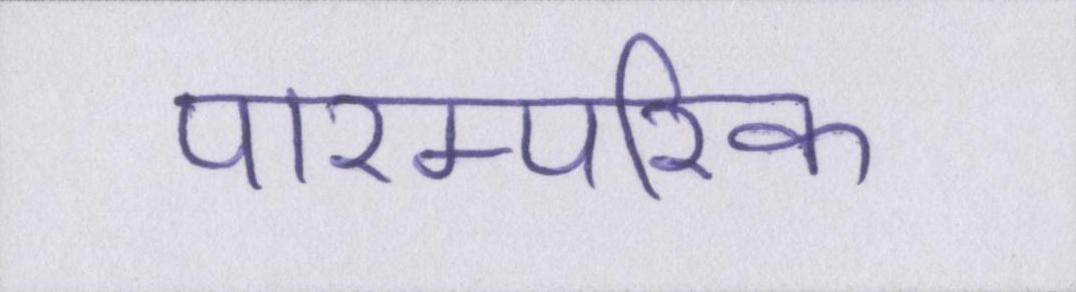 पारम्परिक